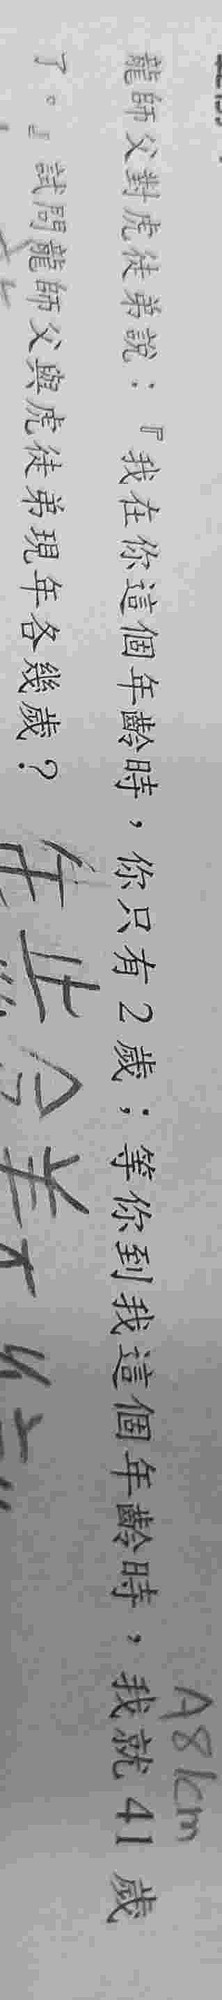 龍師父對虎徒弟說：『我在你這個年齡時，你只有2歲；等你到我這個年齡時，我就41歲
了。』試問龍師父與虎徒弟現年各幾歲？
A8km